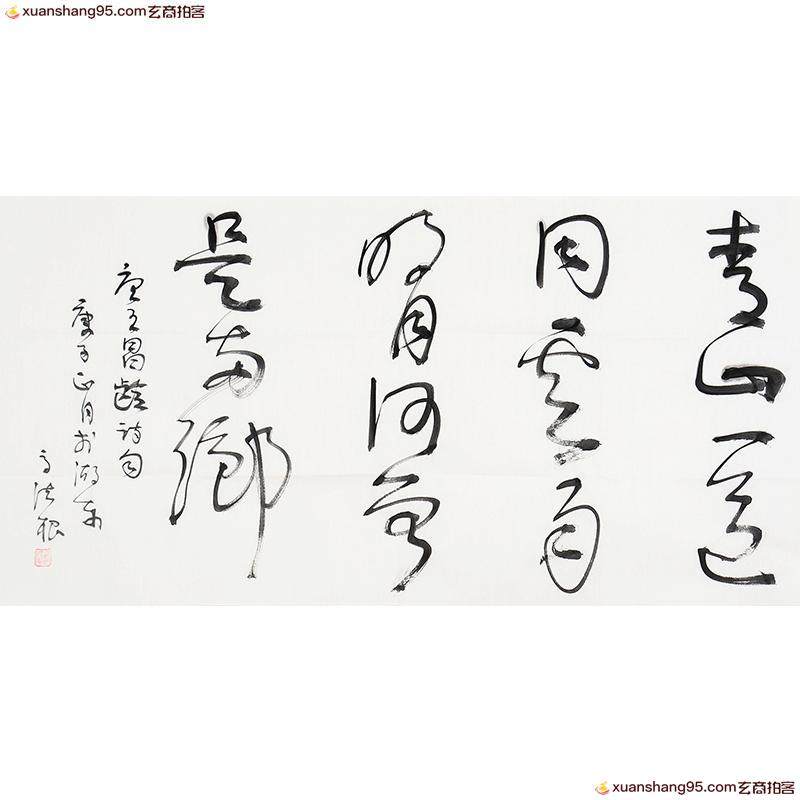 xuanshang95.com玄商拍客
青山一道
同云雨
明月何曾
是两乡
唐王昌龄诗句
庚子正月於湖东
高洪根
xuanshang95.com玄商拍客